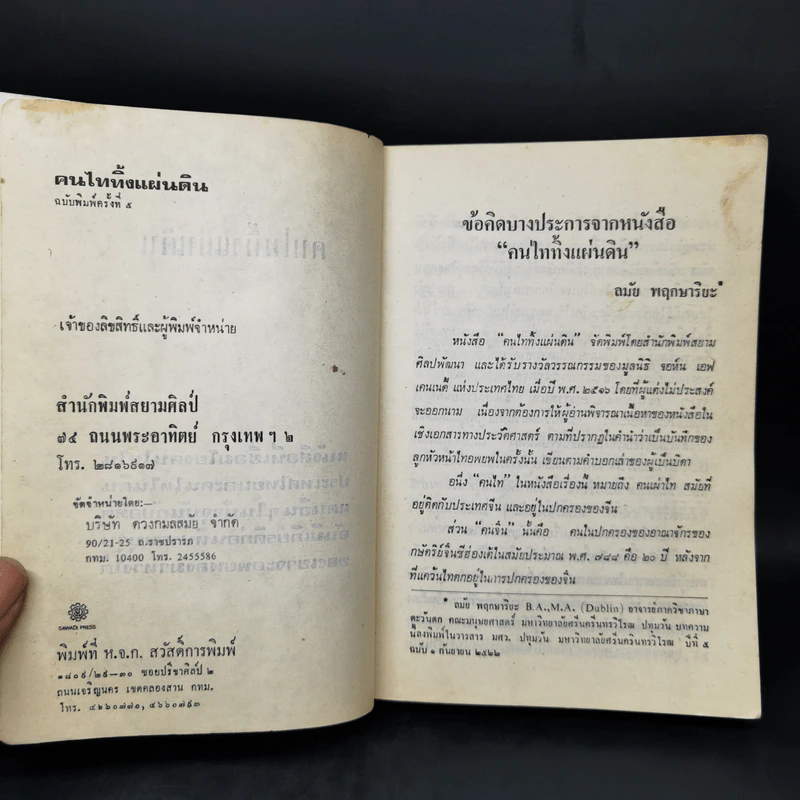 คนไททิ้งแผ่นดิน
ฉบับพิมพ์ครั้งที่ ๕
เจ้าของลิขสิทธิ์และผู้พิมพ์จำหน่าย
สำนักพิมพ์สยามศิลป์
๗๔ ถนนพระอาทิตย์ กรุงเทพ ฯ ๒
โทร. ๒๘๑๖๙๑๗
จัดจำหน่ายโดย:—
บริษัท ดวงกมลสมัย จำกัด
90/21-25 ถ.ราชปรารภ
กทม. 10400 โทร. 2455586
SAWADI PRESS
พิมพ์ที่ ห.จ.ก. สวัสดิ์การพิมพ์
๑๘๐๙/๒๙—๓๐ ซอยปรีชาศิลป์ ๒
ถนนเจริญนคร เขตคลองสาน กทม.
โทร. ๔๖๖๐๗๗๑, ๔๖๖๐๗๙๓
ข้อคิดบางประการจากหนังสือ
“คนไททิ้งแผ่นดิน”
ลมัย พฤกษาริยะ*
หนังสือ “คนไททิ้งแผ่นดิน” จัดพิมพ์โดยสำนักพิมพ์สยาม
ศิลปพัฒนา และได้รับรางวัลวรรณกรรมของมูลนิธิ จอห์น เอฟ
เคนเนดี้ แห่งประเทศไทย เมื่อปี พ.ศ. ๒๕๑๖ โดยที่ผู้แต่งไม่ประสงค์
จะออกนาม เนื่องจากต้องการให้ผู้อ่านพิจารณาเนื้อหาของหนังสือใน
เชิงเอกสารทางประวัติศาสตร์ ตามที่ปรากฏในคำนำว่าเป็นบันทึกของ
ลูกหัวหน้าไทอพยพในครั้งนั้น เขียนตามคำบอกเล่าของผู้เป็นบิดา
อนึ่ง “คนไท” ในหนังสือเรื่องนี้ หมายถึง คนเผ่าไท สมัยที่
อยู่ติดกับประเทศจีน และอยู่ในปกครองของจีน
ส่วน “คนจีน” นั้นคือ คนในปกครองของอาณาจักรของ
กษัตริย์จีนชีฮ่องเต้ในสมัยประมาณ พ.ศ. ๗๘๘ คือ ๒๐ ปี หลังจาก
ที่แคว้นไทตกอยู่ในการปกครองของจีน
* ลมัย พฤกษาริยะ B.A.,M.A. (Dublin) อาจารย์ภาควิชาภาษา
ตะวันตก คณะมนุษยศาสตร์ มหาวิทยาลัยศรีนครินทรวิโรฒ ปทุมวัน บทความ
นี้ลงพิมพ์ในวารสาร มศว. ปทุมวัน มหาวิทยาลัยศรีนครินทรวิโรฒ ปีที่ ๕
ฉบับ ๑ กันยายน ๒๕๒๒